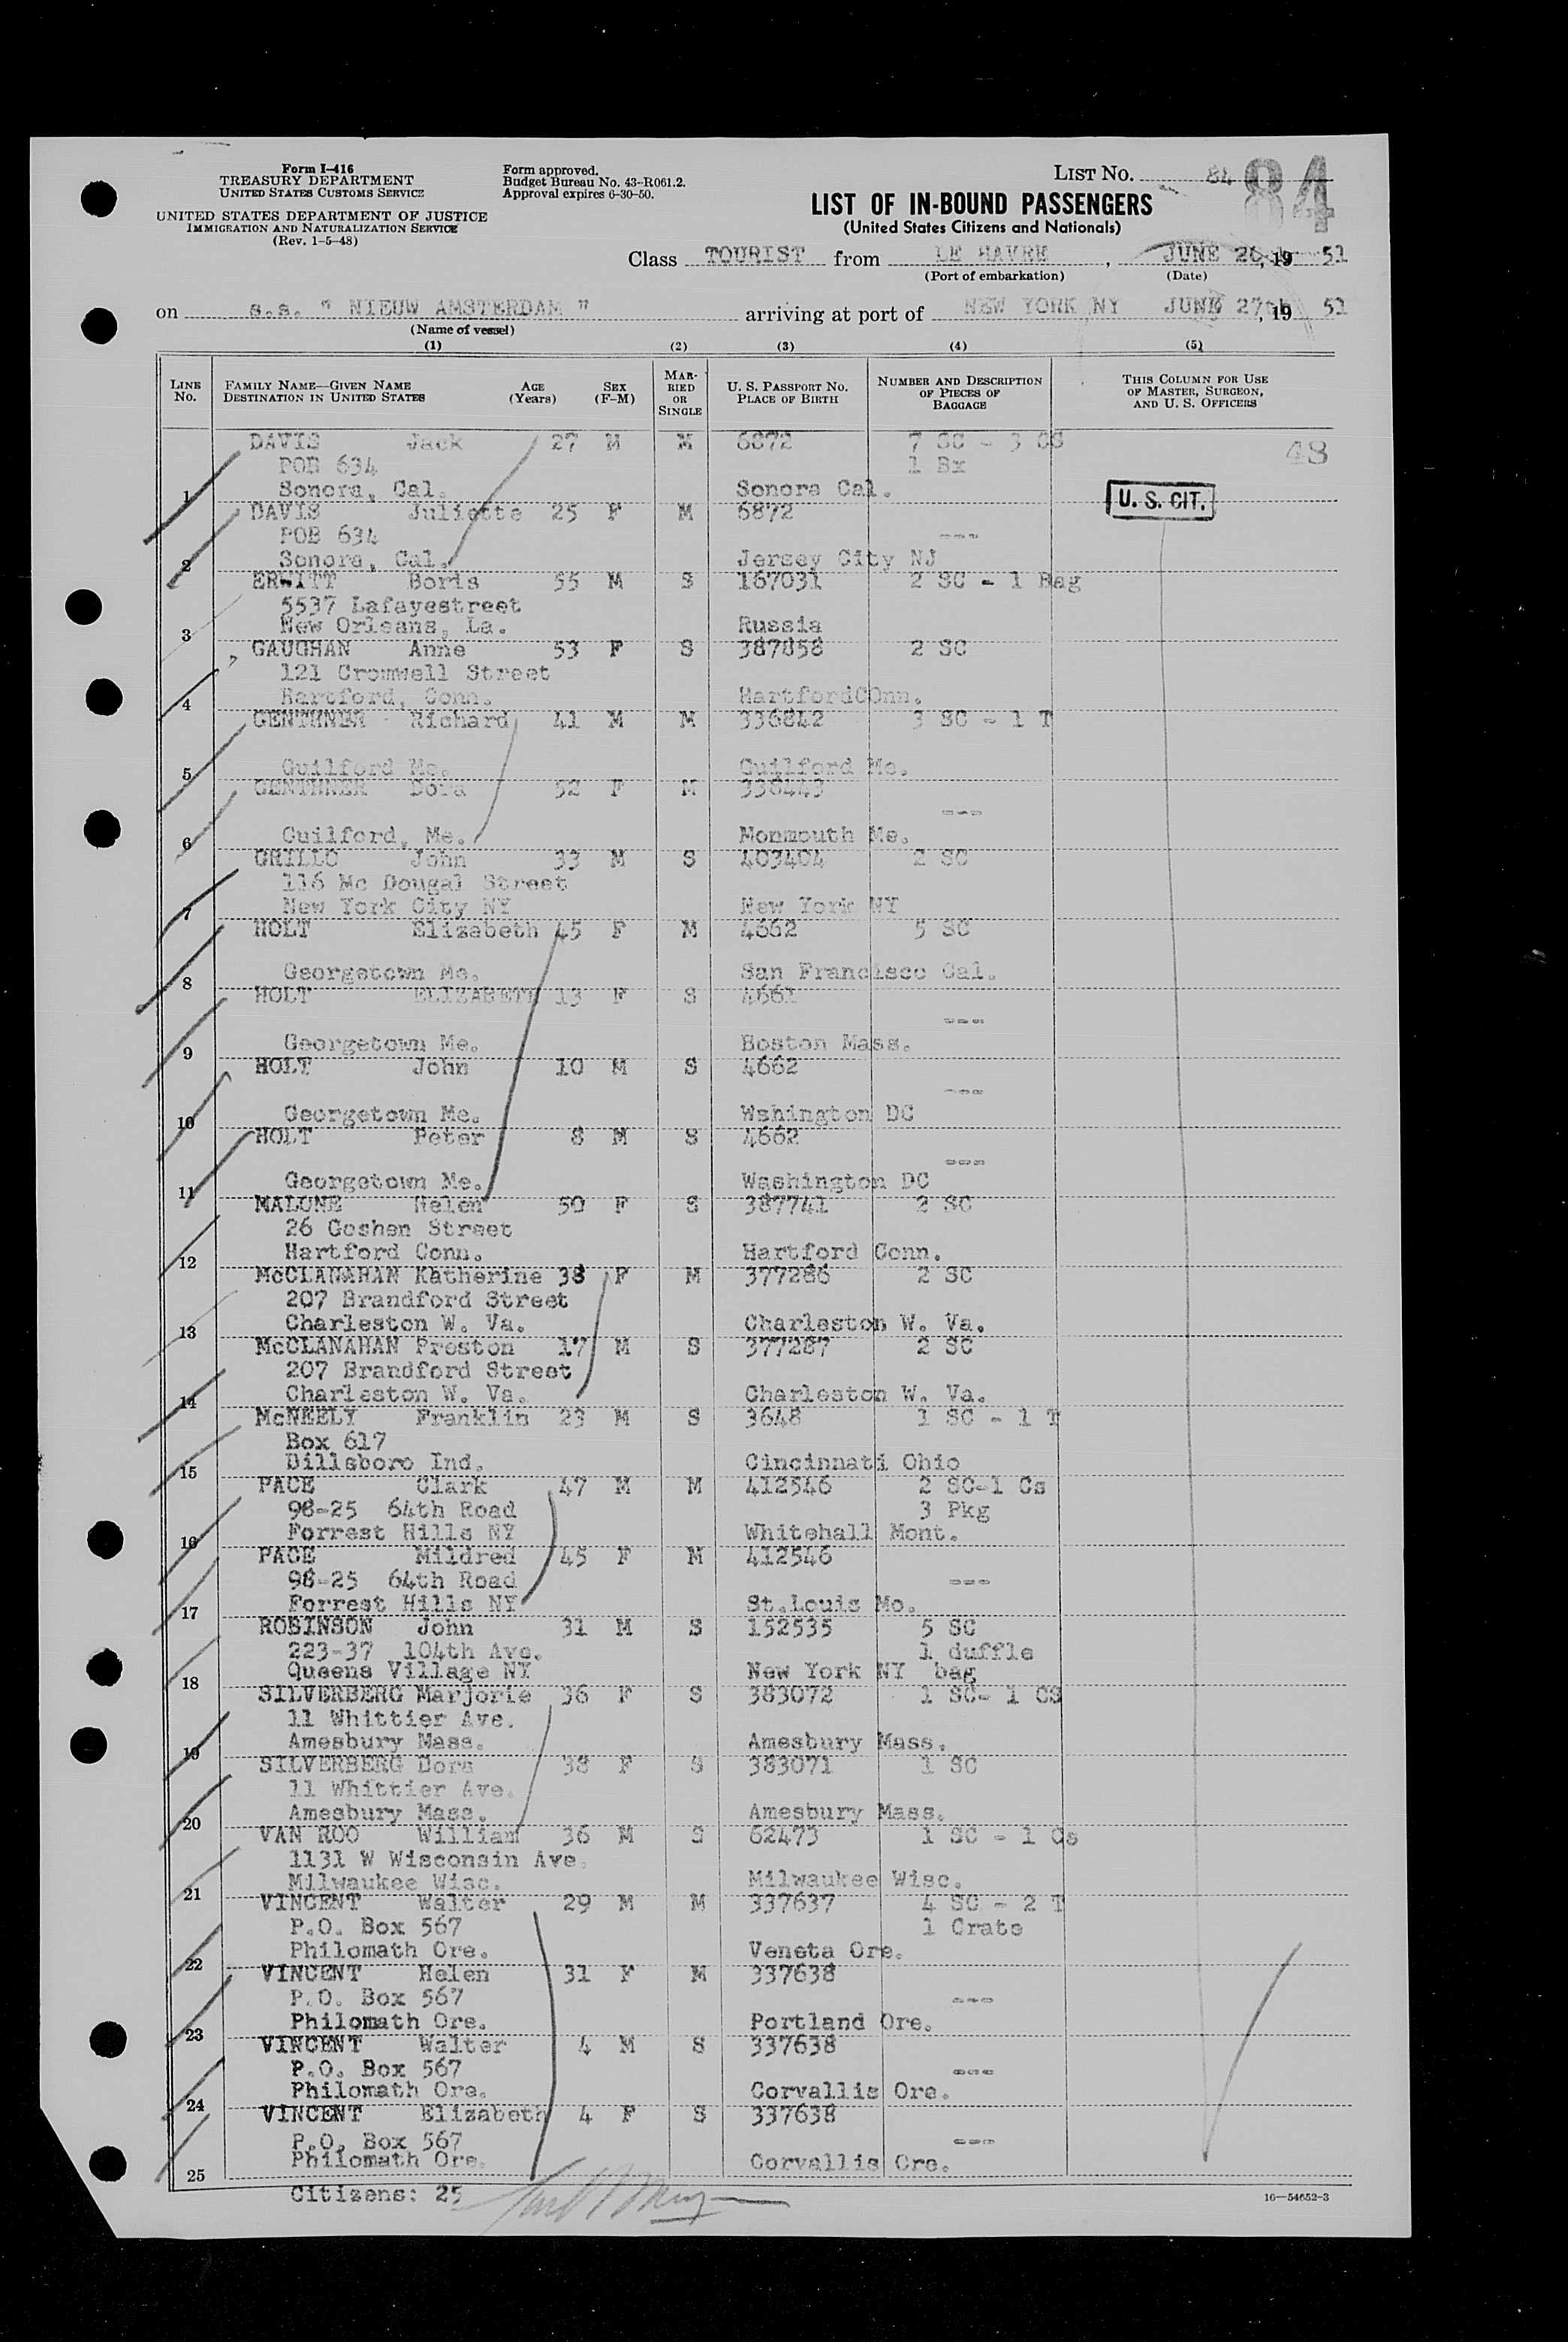 Form I-416
TREASURY DEPARTMENT
UNITED STATES CUSTOMS SERVICE
UNITED STATES DEPARTMENT OF JUSTICE
IMMIGRATION AND NATURALIZATION SERVICE
(Rev. 1-5-48)
Form approved.
Budget Bureau No. 43-R061.2.
Approval expires 6-30-50.
LIST NO. 84 84
LIST OF IN-BOUND PASSENGERS
(United States Citizens and Nationals)
Class TOURIST from LE HAVRE, JUNE 20, 19 51
(Port of embarkation) (Date)
on s.s. " NIEUW AMSTERDAM " arriving at port of NEW YORK NY JUNE 27th, 19 51
(Name of vessel)
(1) (2) (3) (4) (5)
LINE NO. FAMILY NAME—GIVEN NAME DESTINATION IN UNITED STATES AGE (Years) SEX (F-M) MARRIED OR SINGLE U. S. PASSPORT NO. PLACE OF BIRTH NUMBER AND DESCRIPTION OF PIECES OF BAGGAGE THIS COLUMN FOR USE OF MASTER, SURGEON, AND U. S. OFFICERS
DAVIS Jack 27 M M 6872 7 SC - 3 CS 48
POB 634 1 Bx
1 Sonora, Cal. Sonora Cal. U. S. CIT.
DAVIS Juliette 25 F M 6872
POB 634 ---
2 Sonora, Cal. Jersey City NJ
ERWITT Boris 55 M S 167031 2 SC - 1 Bag
5537 Lafayestreet
3 New Orleans, La. Russia
GAUGHAN Anne 53 F S 387858 2 SC
121 Cromwell Street
4 Hartford, Conn. HartfordCOnn.
GENTHNER Richard 41 M M 336842 3 SC - 1 T
5 Guilford Me. Guilford Me.
GENTHNER Dora 52 F M 336443
---
6 Guilford, Me. Monmouth Me.
GRILLO John 33 M S 403404 2 SC
116 Mc Dougal Street
7 New York City NY New York NY
HOLT Elizabeth 45 F M 4662 5 SC
8 Georgetown Me. San Francisco Cal.
HOLT ELIZABETH 13 F S 4661
---
9 Georgetown Me. Boston Mass.
HOLT John 10 M S 4662
---
10 Georgetown Me. Wshington DC
HOLT Peter 8 M S 4662
---
11 Georgetown Me. Washington DC
MALONE Helen 50 F S 387741 2 SC
26 Goshen Street
12 Hartford Conn. Hartford Conn.
McCLANAHAN Katherine 38 F M 377286 2 SC
207 Brandford Street
13 Charleston W. Va. Charleston W. Va.
McCLANAHAN Preston 17 M S 377287 2 SC
207 Brandford Street
14 Charleston W. Va. Charleston W. Va.
McNEELY Franklin 23 M S 3648 1 SC - 1 T
Box 617
15 Dillsboro Ind. Cincinnati Ohio
PACE Clark 47 M M 412546 2 SC-1 Cs
98-25 64th Road 3 Pkg
16 Forrest Hills NY Whitehall Mont.
PACE Mildred 45 F M 412546
98-25 64th Road ---
17 Forrest Hills NY St.Louis Mo.
ROBINSON John 31 M S 152535 5 SC
223-37 104th Ave. 1 duffle
18 Queens Village NY New York NY bag
SILVERBERG Marjorie 36 F S 383072 1 SC- 1 CS
11 Whittier Ave.
19 Amesbury Mass. Amesbury Mass.
SILVERBERG Dora 38 F S 383071 1 SC
11 Whittier Ave.
20 Amesbury Mass. Amesbury Mass.
VAN ROO William 36 M S 62473 1 SC - 1 Cs
1131 W Wisconsin Ave.
21 Milwaukee Wisc. Milwaukee Wisc.
VINCENT Walter 29 M M 337637 4 SC - 2 T
P.O. Box 567 1 Crate
22 Philomath Ore. Veneta Ore.
VINCENT Helen 31 F M 337638
P.O. Box 567 ---
23 Philomath Ore. Portland Ore.
VINCENT Walter 4 M S 337638
P.O. Box 567 ---
24 Philomath Ore. Corvallis Ore.
VINCENT Elizabeth 4 F S 337638
P.O. Box 567 ---
25 Philomath Ore. Corvallis Ore.
Citizens: 25
16—54652-3